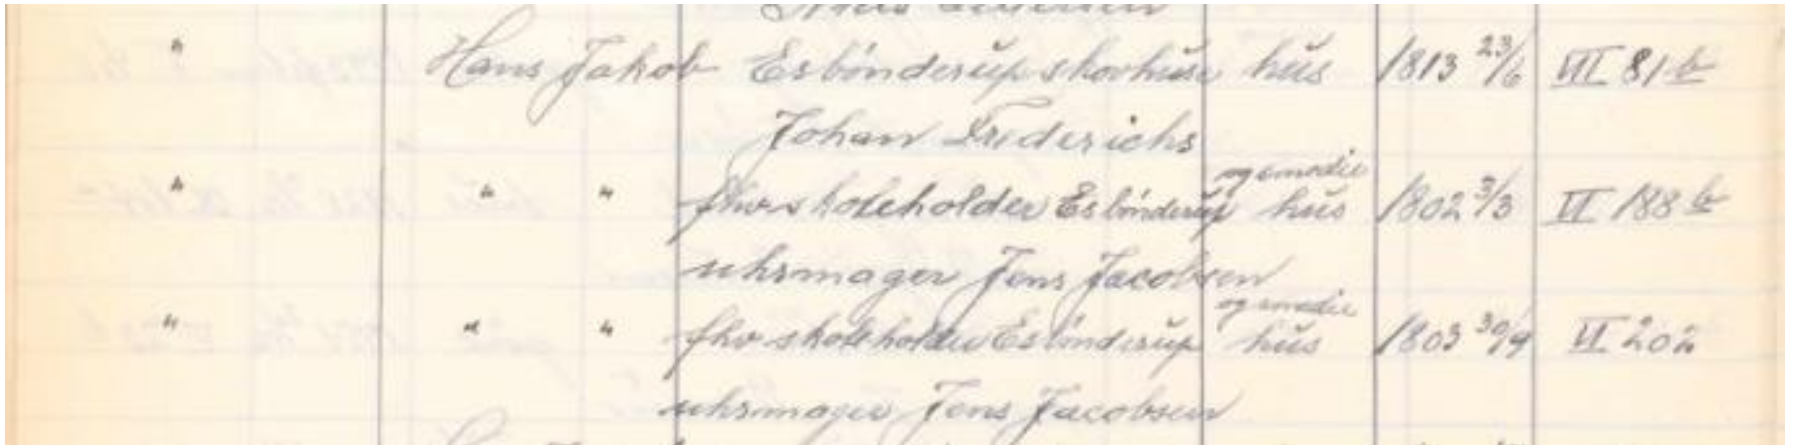 " Hans Jakob Esbønderup skovhuse hus 1813 23/6 VII 81 b
Johan Frederichs
og smedie
" " " fhv skoleholder Esbønderup hus 1802 3/3 VI 188 b
uhrmager Jens Jacobsen
og smedie
" " " fhv skoleholder Esbønderup hus 1803 30/9 VI 202
uhrmager Jens Jacobsen